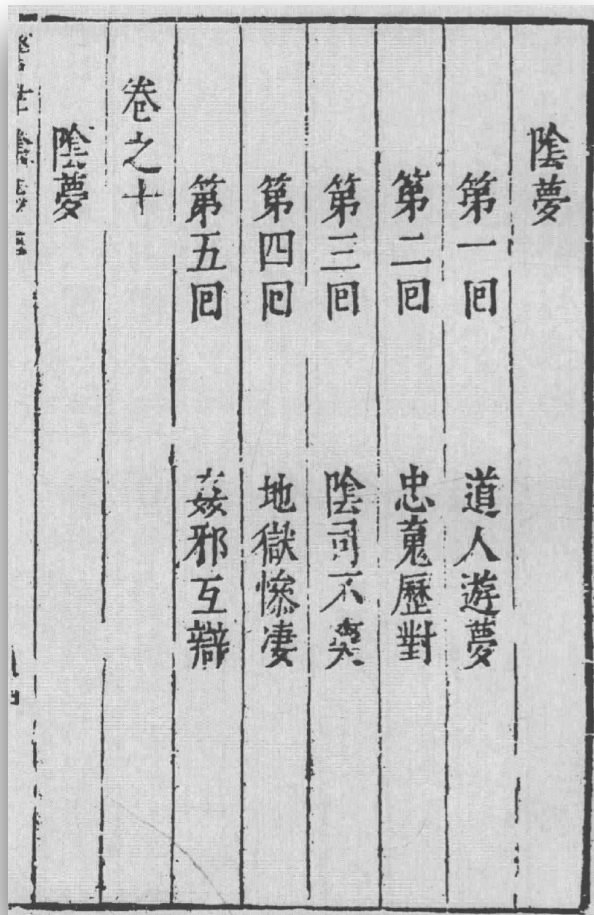 陰夢
第一回 道人遊夢
第二回 忠䰟歷對
第三回 陰司不爽
第四回 地獄慘凄
第五回 姦邪互辯
卷之十
陰夢